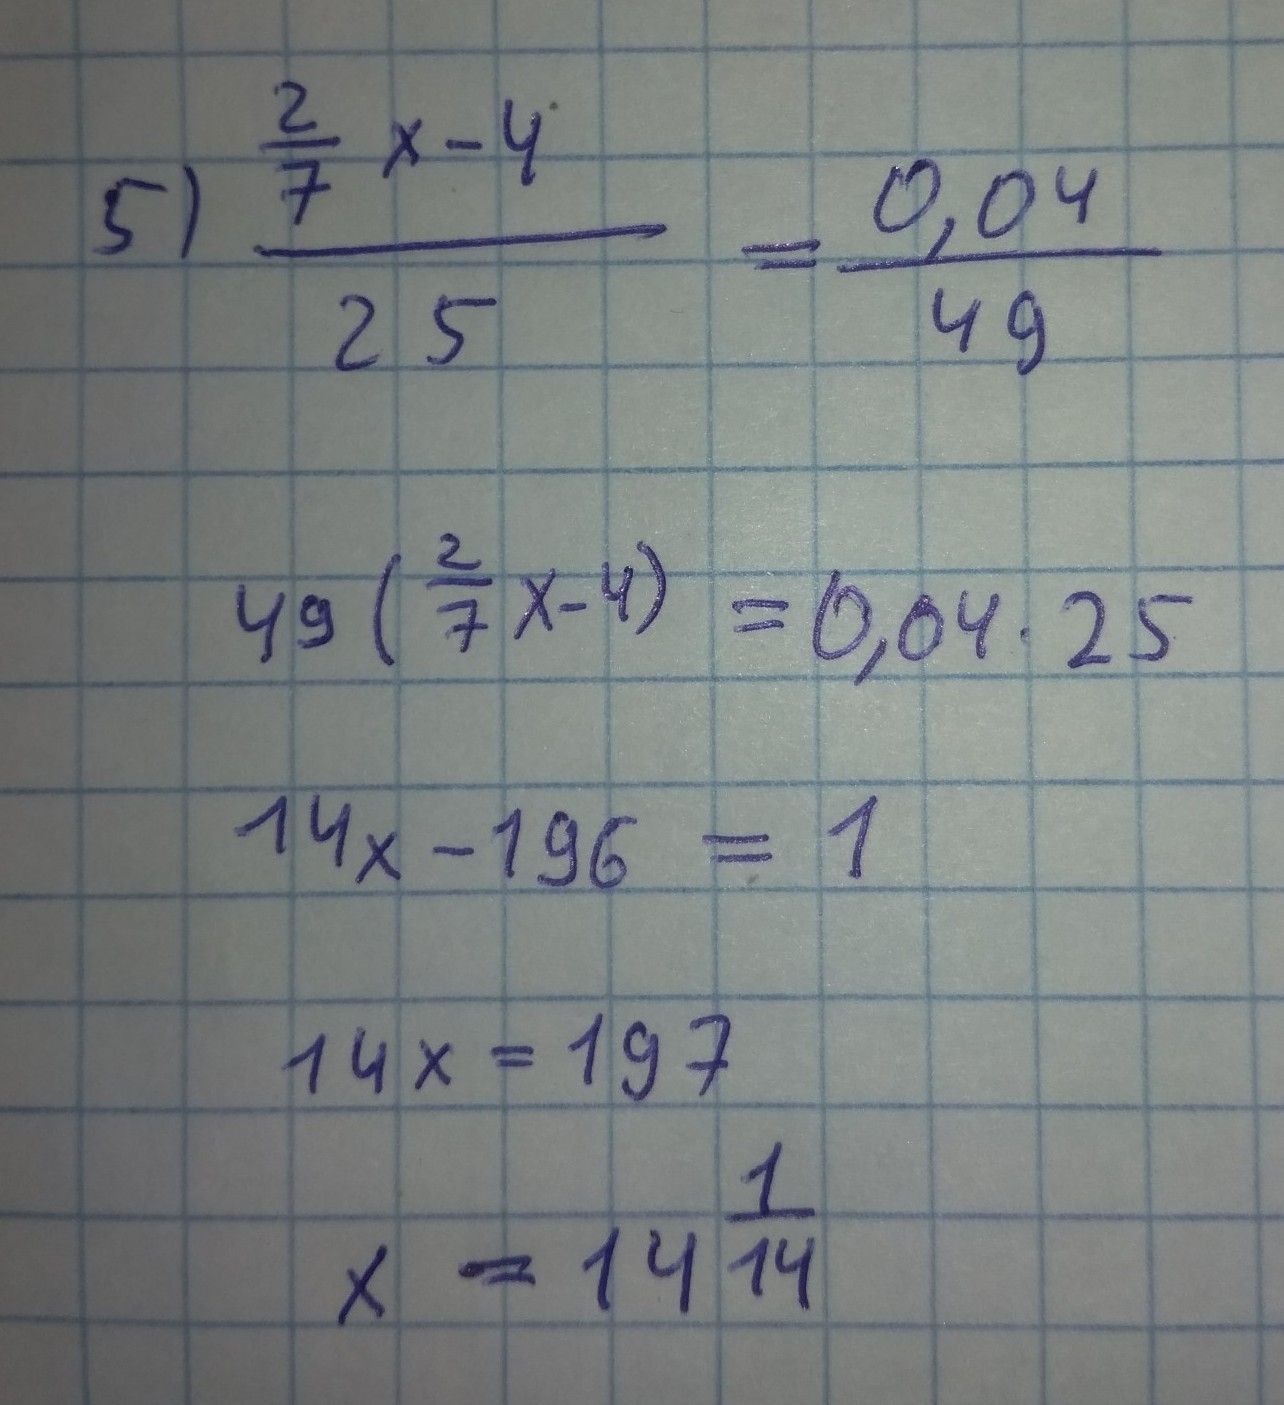 5) (2/7 x - 4)/25 = 0,04/49
49(2/7 x - 4) = 0,04 · 25
14x - 196 = 1
14x = 197
x = 14 1/14